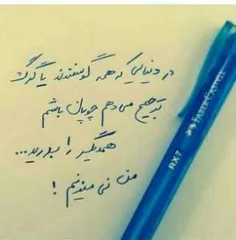 در دنیایی که همه گوسفندند یا گرگ
ترجیح می دهم چوپان باشم
همدیگر را بدرید...
من نی میزنم !
FABER-CASTELL
RX7